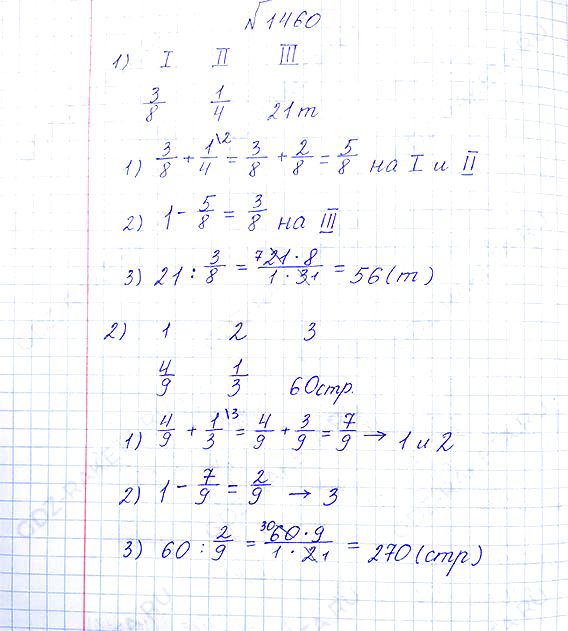 №1460
1) I II III
3/8 1/4 21 т
1) 3/8 + 1/4\2 = 3/8 + 2/8 = 5/8 на I и II
2) 1 - 5/8 = 3/8 на III
3) 21 : 3/8 = 7 21 · 8 / 1 · 3 1 = 56 (т)
2) 1 2 3
4/9 1/3 60 стр.
1) 4/9 + 1/3\3 = 4/9 + 3/9 = 7/9 → 1 и 2
2) 1 - 7/9 = 2/9 → 3
3) 60 : 2/9 = 30 60 · 9 / 1 · 2 1 = 270 (стр)